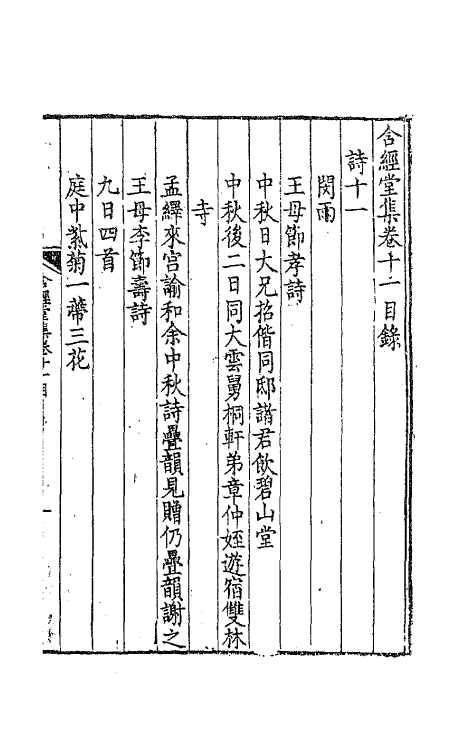 含經堂集卷十一目錄
詩十一
閔雨
王母節孝詩
中秋日大兄招偕同邸諸君飲碧山堂
中秋後二日同大雲舅桐軒弟章仲姪遊宿雙林
寺
孟繹來宮諭和余中秋詩疊韻見贈仍疊韻謝之
王母李節壽詩
九日四首
庭中紫菊一蒂三花
含經堂集卷十一目